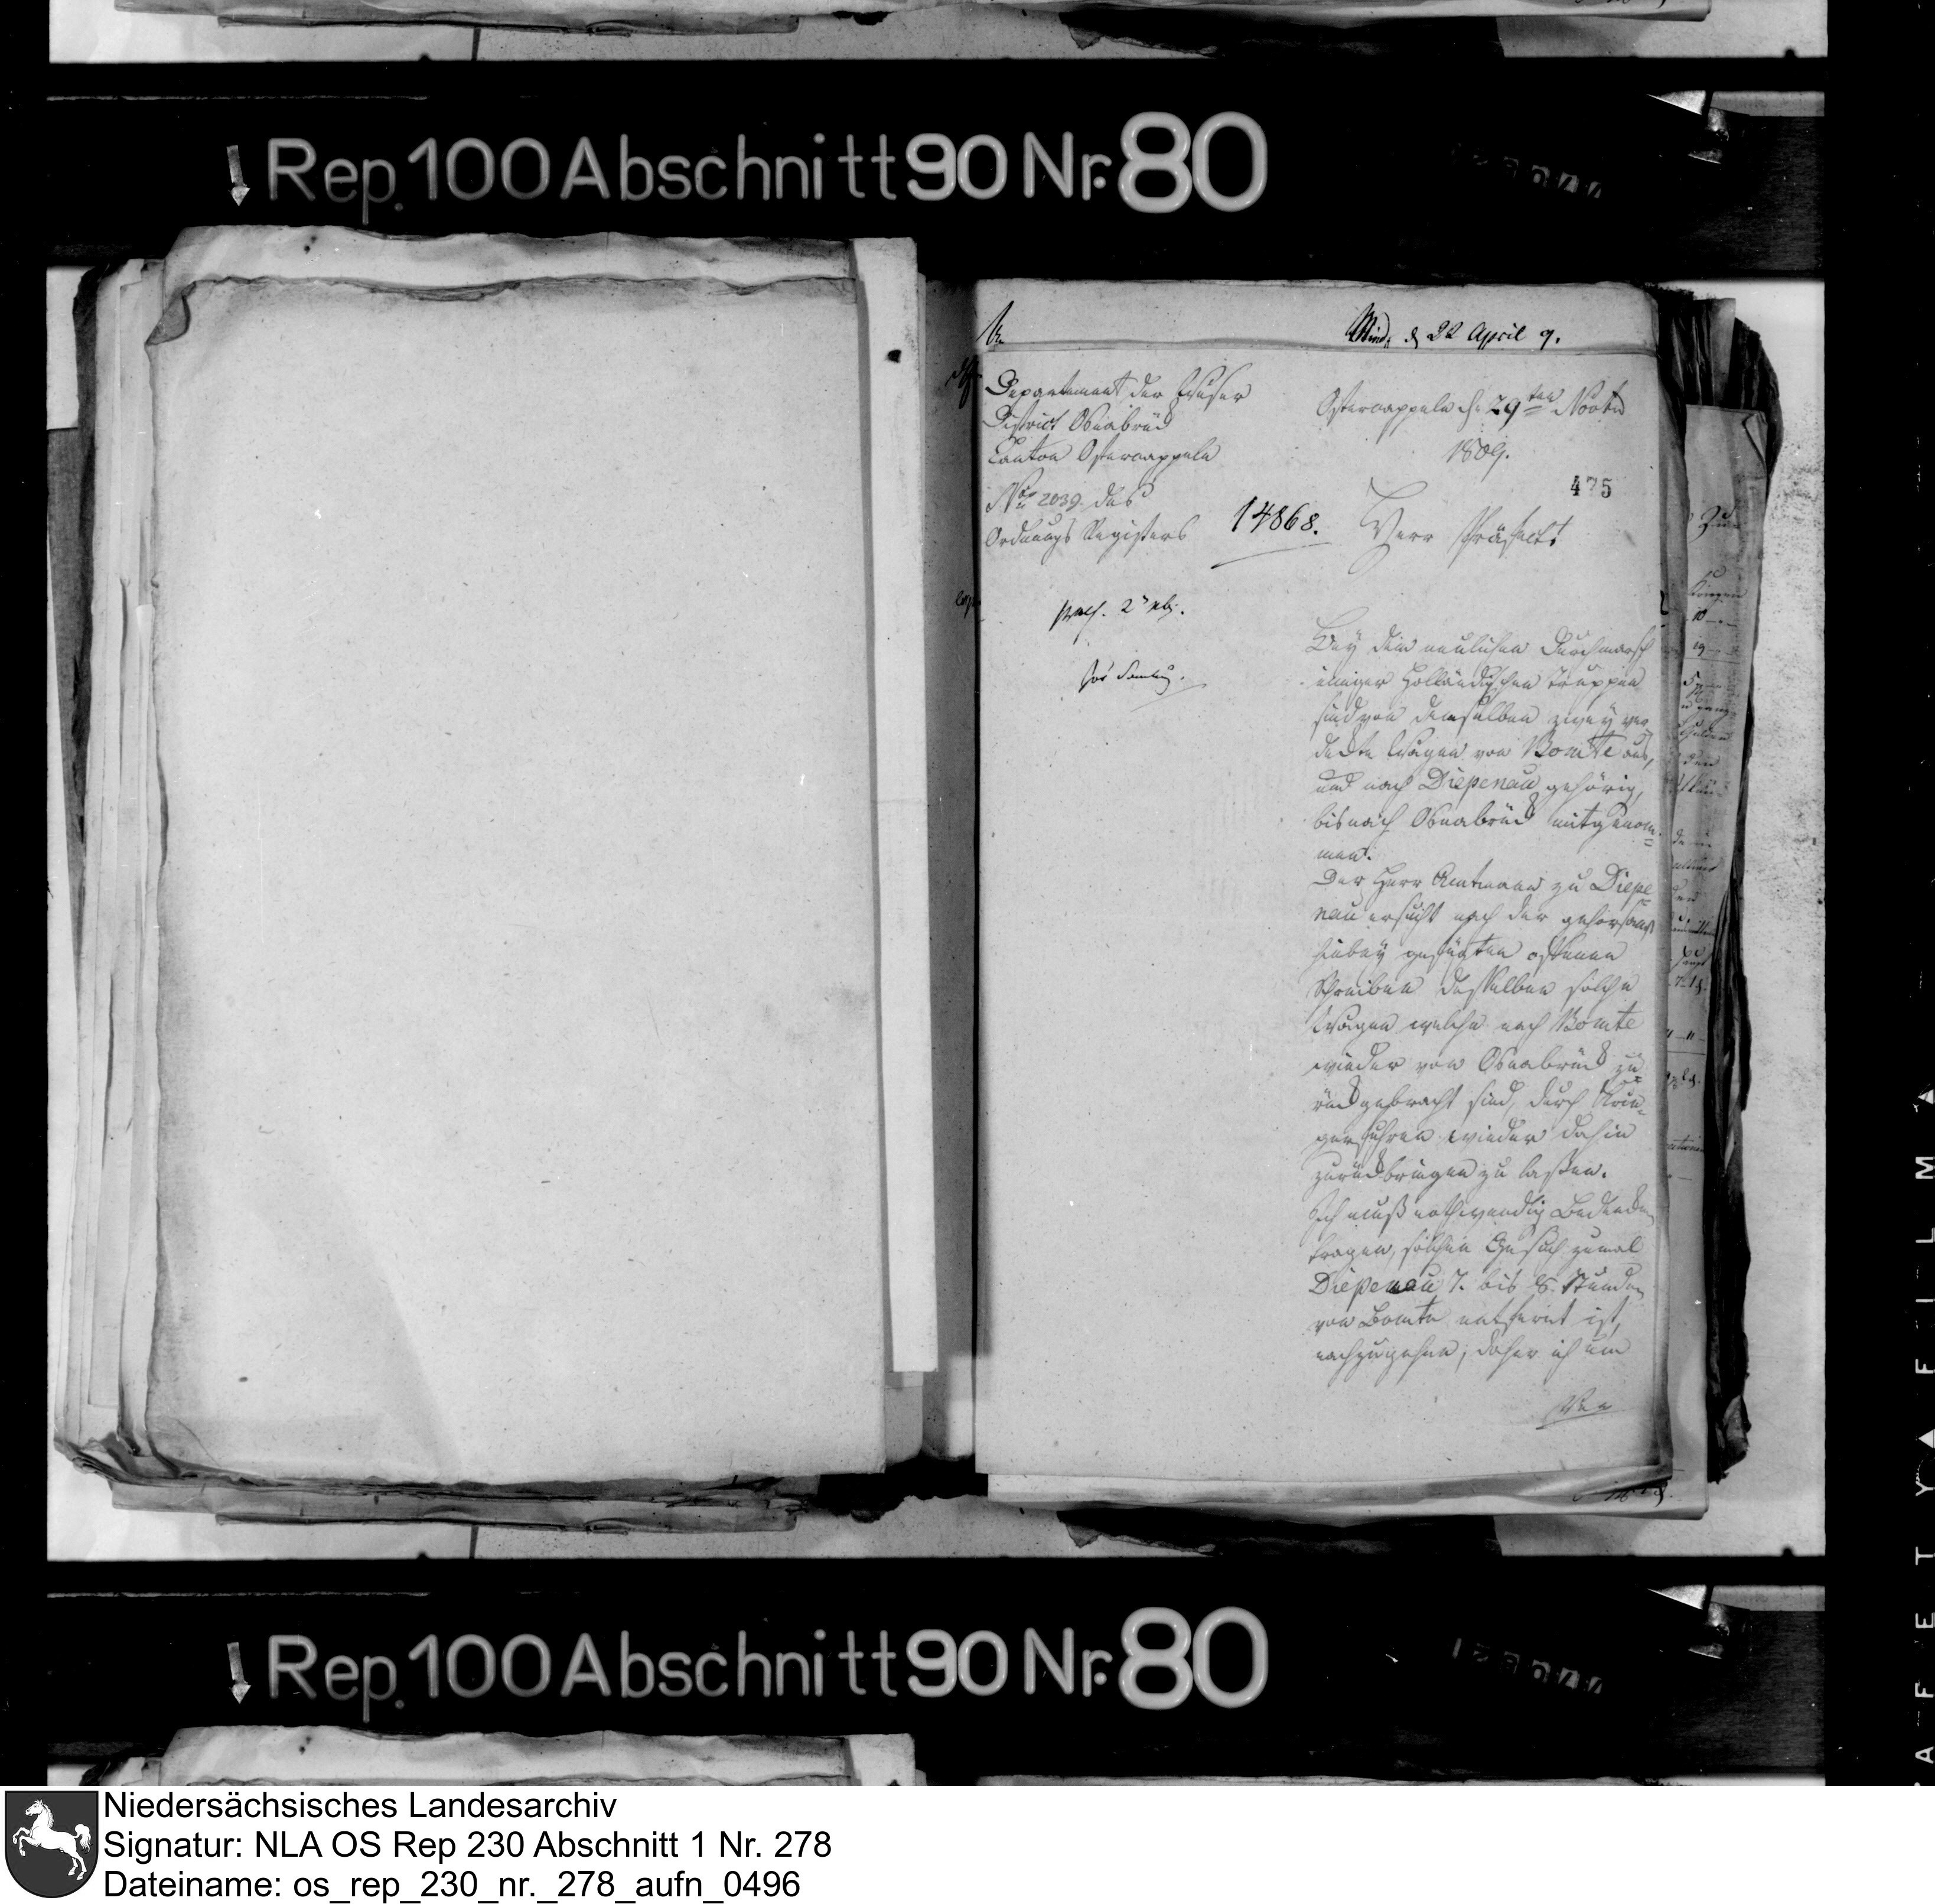 Rep. 100 Abschnitt 90 Nr. 80
Mind, d 22 April 9.
Departement der Weser
District Osnabrück
Canton Ostercappeln
No 2039. des
Ordnungs Registers
14868.
Ostercappeln d. 29ten Novbr
1809.
475
Herr Präfect!
praes. 2
Bey dem neulichen Durchmarsch
einiger Holländischen Truppen
sind von denselben zwey ver
deckte Wagen von Bomte aus,
und nach Diepenau gehörig,
bis nach Osnabrück mitgenom-
men.
Der Herr Amtmann zu Diepe
nau ersucht nach der gehorsamst
hiebey gefügten offenen
Schreiben desselben solche
Wagen welche nach Bomte
wieder von Osnabrück zu
rückgebracht sind, durch
fuhren wieder dahin
zurückbringen zu laßen.
Ich muß nothwendig Bedenken
tragen, solchen Gesuch zumal
Diepenau 7. bis 8. Stunden
von Bomte entfernt ist,
nachzugehen; daher ich um
Rep. 100 Abschnitt 90 Nr. 80
Niedersächsisches Landesarchiv
Signatur: NLA OS Rep 230 Abschnitt 1 Nr. 278
Dateiname: os_rep_230_nr._278_aufn_0496